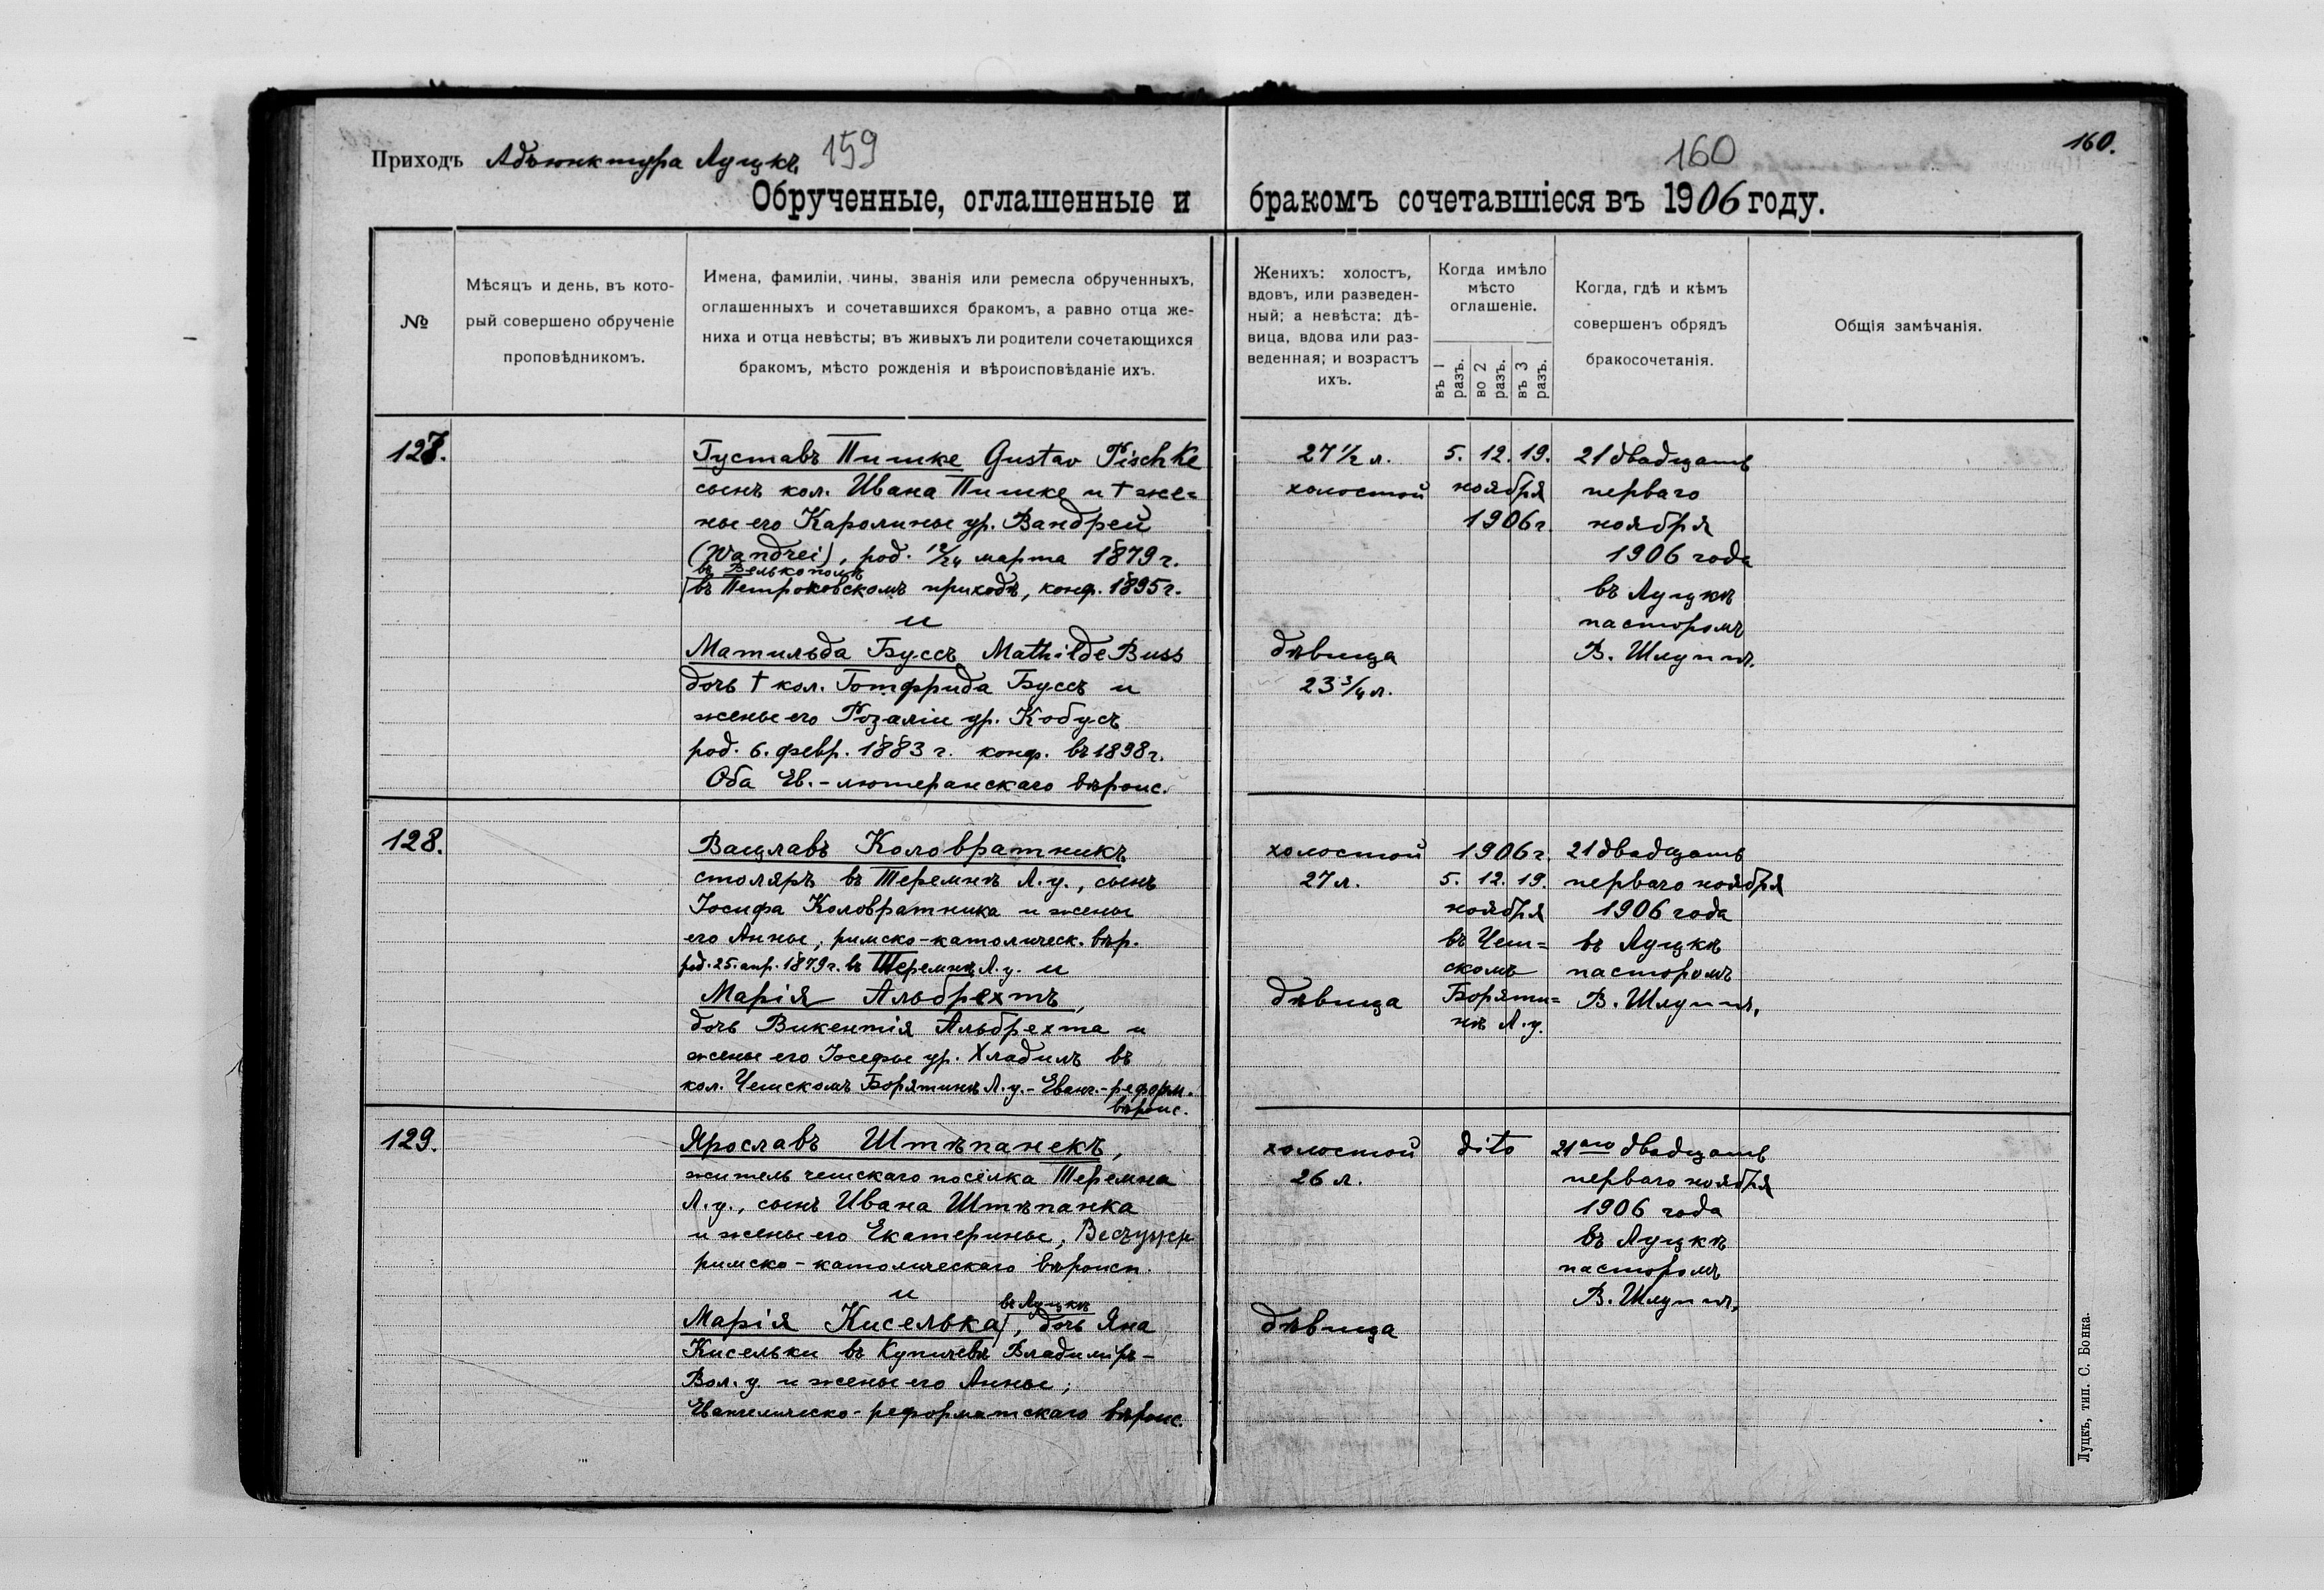 Приходъ Адъюнктура Луцкъ 159
Обрученные, оглашенные и
№
Мѣсяцъ и день, въ кото-
рый совершено обрученіе
проповѣдникомъ.
Имена, фамиліи, чины, званія или ремесла обрученныхъ,
оглашенныхъ и сочетавшихся бракомъ, а равно отца же-
ниха и отца невѣсты; въ живыхъ ли родители сочетающихся
бракомъ, мѣсто рожденія и вѣроисповѣданіе ихъ.
127.
Густавъ Пишке Gustav Pischke
сынъ кол. Ивана Пишке и † же=
ны его Каролины ур. Вандрей
(Wandrei), род. 12/24 марта 1879 г.
въ Велькополѣ
въ Петроковскомъ приходѣ, конф. 1895 г.
и
Матильда Буссъ Mathilde Buss
дочь † кол. Готфрида Буссъ и
жены его Розаліи ур. Кобусъ
род. 6. февр. 1883 г. конф. въ 1898 г.
Оба Ев.-лютеранскаго вѣроис.
128.
Вацлавъ Коловратникъ
столяръ въ Теремнѣ Л. у., сынъ
Іосифа Коловратника и жены
его Анны, римско-католическ. вѣр.
род. 25. апр. 1879 г. въ Теремнѣ Л. у. и
Марія Альбрехтъ,
дочь Викентія Альбрехта и
жены его Іосефы ур. Хладилъ въ
кол. Чешскомъ Борятинѣ Л. у.- Еванг.-реформ.
вѣроис.
129.
Ярославъ Штѣпанекъ,
житель чешскаго посёлка Теремна
Л. у., сынъ Ивана Штѣпанка
и жены его Екатерины,
римско-католическаго вѣроисп.
и
въ Луцкѣ
Марія Киселька, дочь Яна
Кисельки въ Купичевѣ Владимір-
Вол. у. и жены его Анны;
Евангелическо-реформатскаго вѣроис.
160
160.
бракомъ сочетавшіеся въ 1906 году.
Женихъ: холостъ,
вдовъ, или разведен-
ный; а невѣста: дѣ-
вица, вдова или раз-
веденная; и возрастъ
ихъ.
Когда имѣло
мѣсто
оглашеніе.
въ 1
разъ.
во 2
разъ.
въ 3
разъ.
Когда, гдѣ и кѣмъ
совершенъ обрядъ
бракосочетанія.
Общія замѣчанія.
27 1/2 л.
холостой
дѣвица
23 3/4 л.
5. 12. 19.
ноября
1906 г.
21 двадцать
перваго
ноября
1906 года
въ Луцкѣ
пасторомъ
В. Шлуппъ.
холостой
27 л.
дѣвица
1906 г.
5. 12. 19.
ноября
въ Чеш=
скомъ
Боряти=
нѣ Л. у.
21 двадцать
перваго ноября
1906 года
въ Луцкѣ
пасторомъ
В. Шлуппъ.
холостой
26 л.
дѣвица
dito
21ого двадцать
перваго ноября
1906 года
въ Луцкѣ
пасторомъ
В. Шлуппъ.
Луцкъ, тип. С. Бонка.